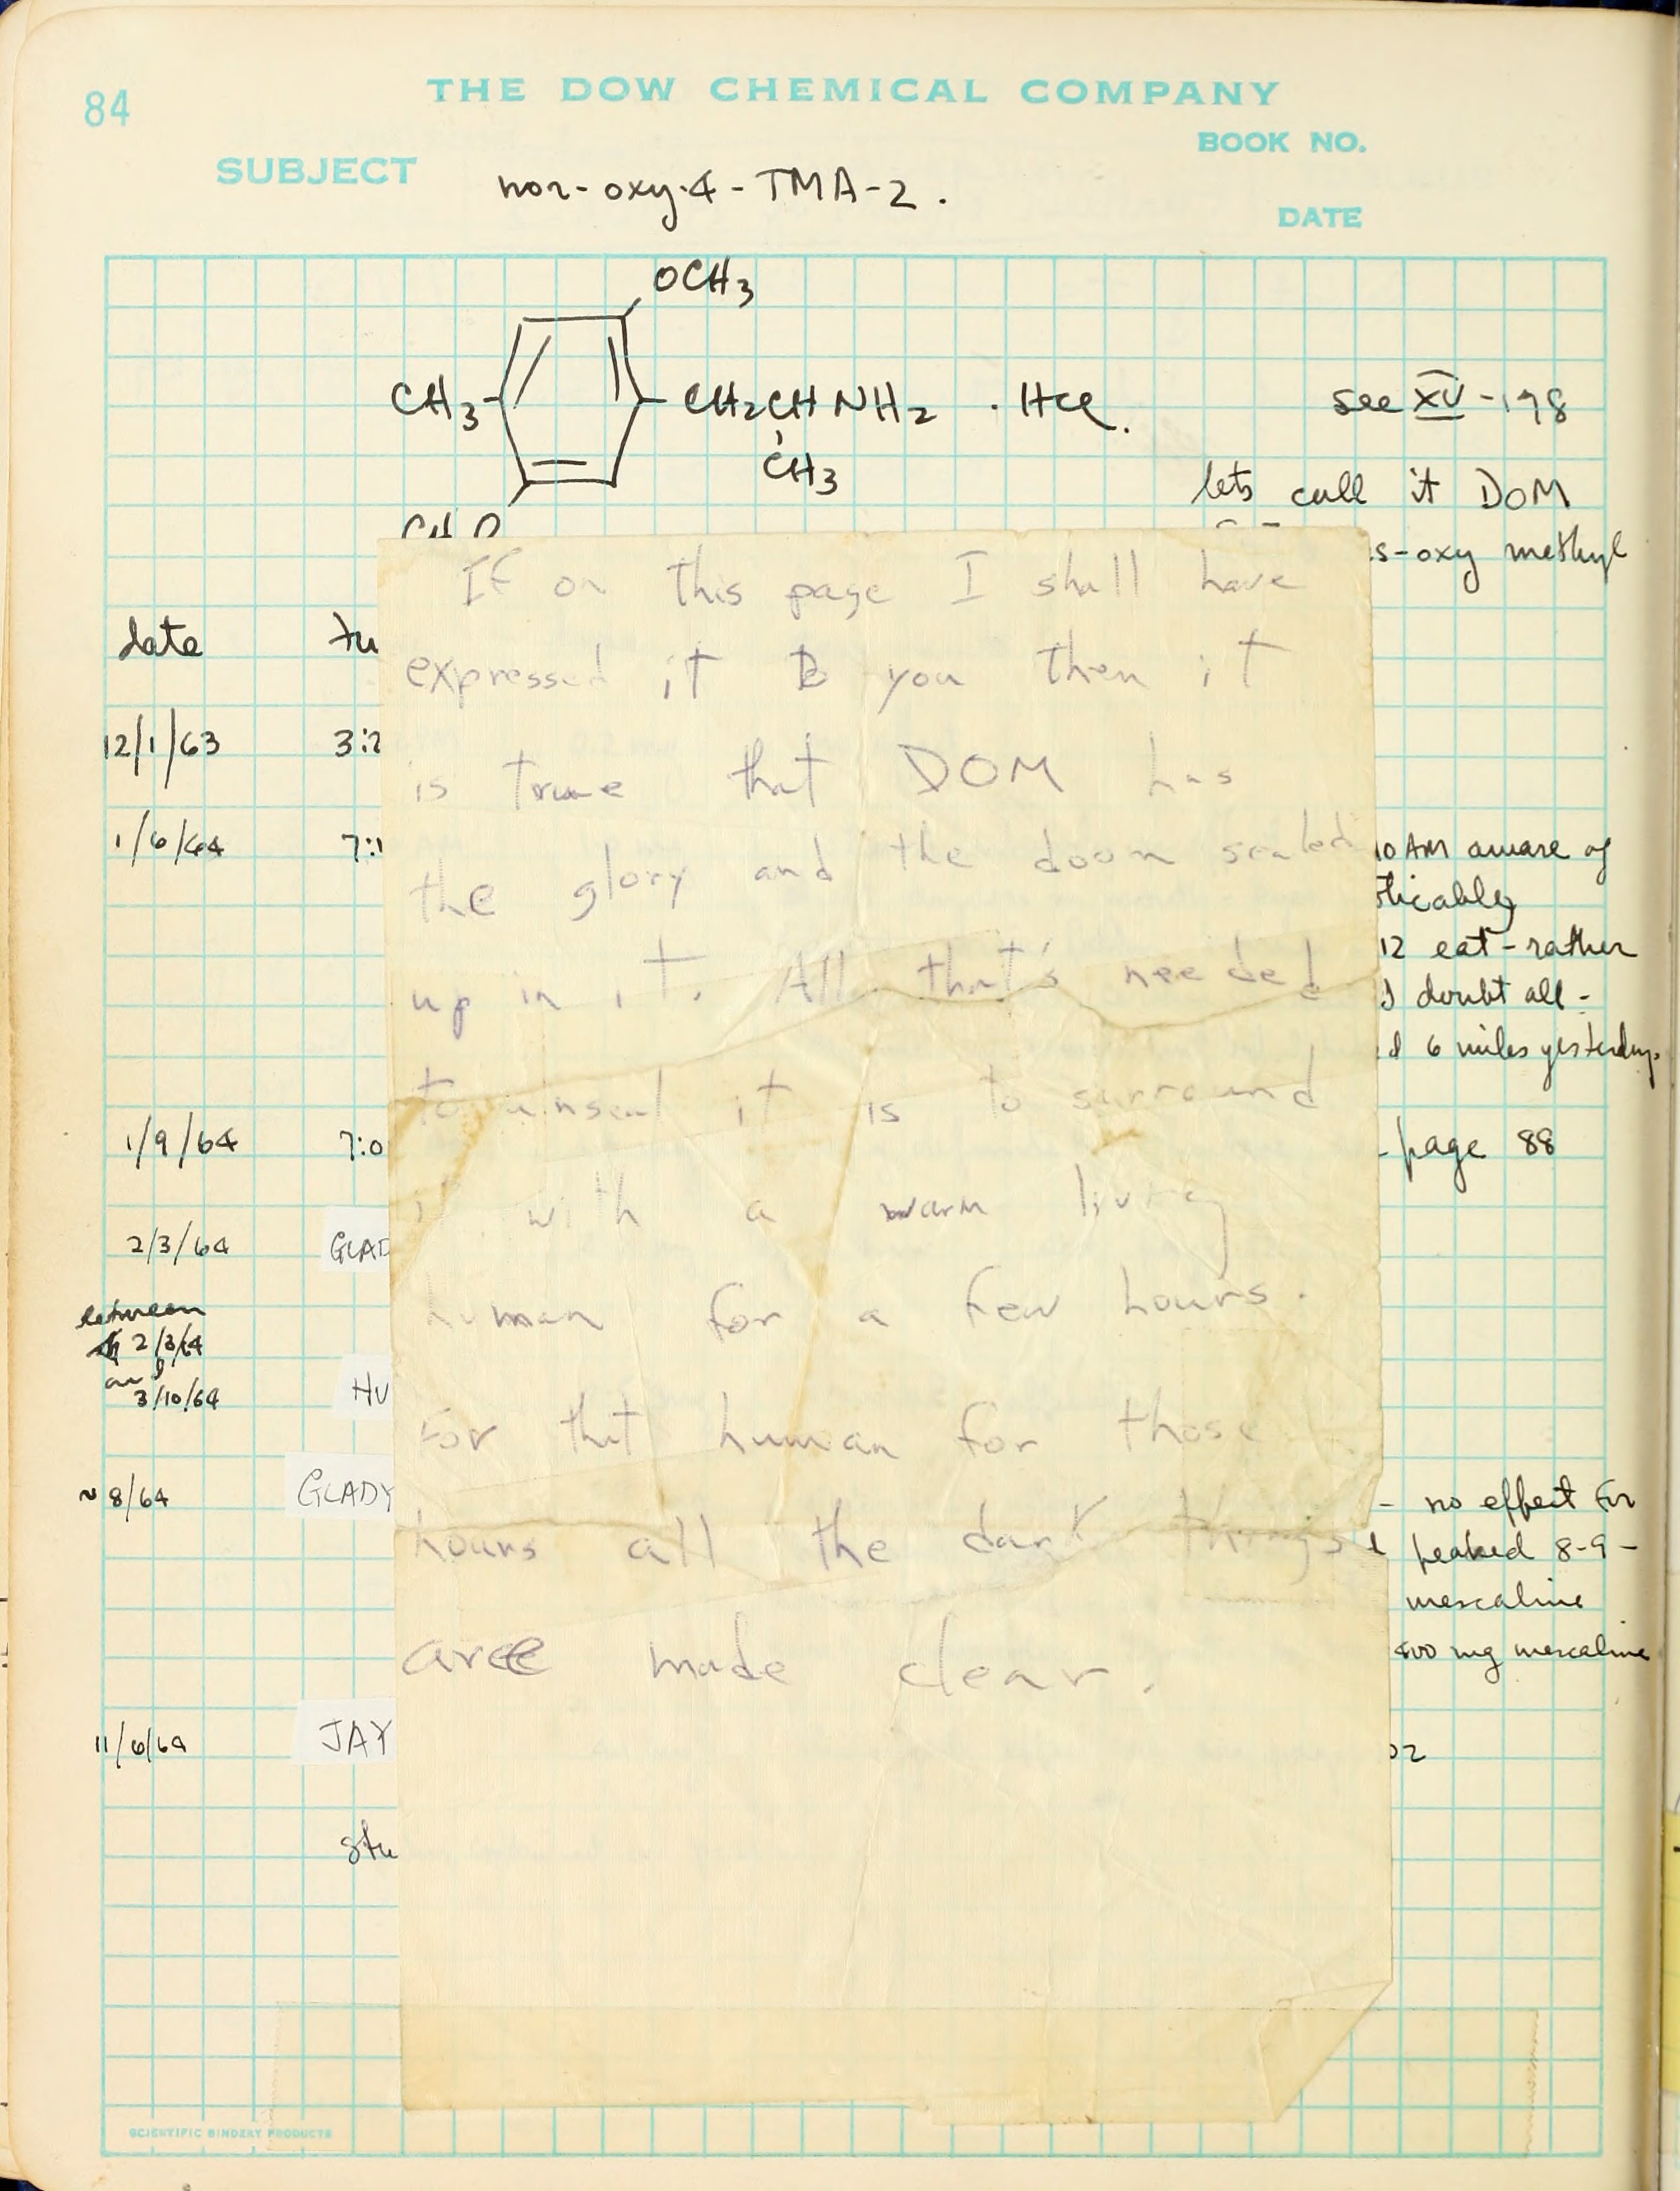 84
THE DOW CHEMICAL COMPANY
BOOK NO.
SUBJECT nor-oxy-4-TMA-2.
DATE
OCH3
CH3 CH2CHNH2 · HCl.
CH3
see XV-198
lets call it DOM
s-oxy methyl
date
12/1/63 3:2
1/6/64 7:1
10 AM aware of
ticably
12 eat - rather
I doubt all -
d 6 miles yesterday.
1/9/64 7:0
page 88
2/3/64 GLAD
between
2/3/64
and
3/10/64 HU
~8/64 GLADY
- no effect for
peaked 8-9-
mescaline
400 mg mescaline
11/6/64 JAY
02
stu
If on this page I shall have
expressed it to you then it
is true that DOM has
the glory and the doom sealed
up in it. All that's needed
to unseal it is to surround
it with a warm living
human for a few hours.
For that human for those
hours all the dark things
are made clear.
SCIENTIFIC BINDERY PRODUCTS